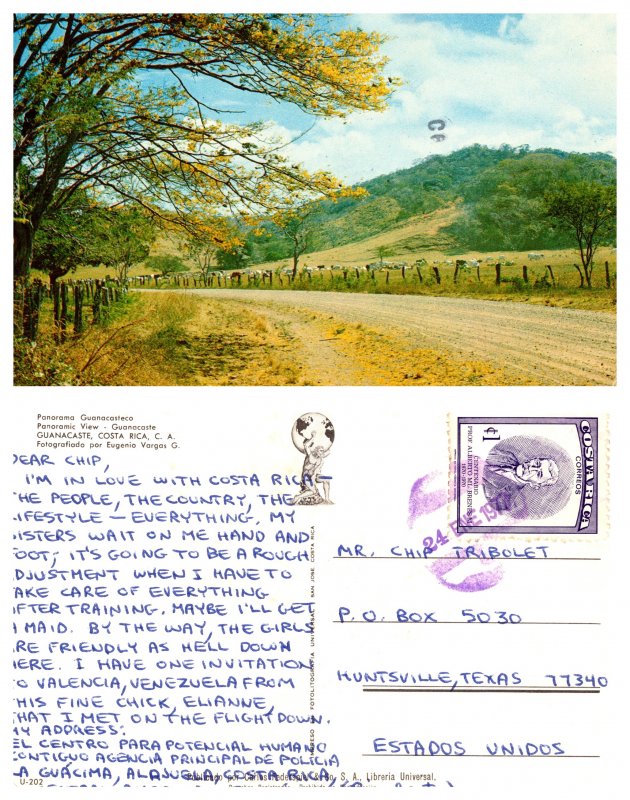 Panorama Guanacasteco
Panoramic View - Guanacaste
GUANACASTE, COSTA RICA, C. A.
Fotografiado por Eugenio Vargas G.
DEAR CHIP,
I'M IN LOVE WITH COSTA RICA —
THE PEOPLE, THE COUNTRY, THE
LIFESTYLE — EVERYTHING. MY
SISTERS WAIT ON ME HAND AND
FOOT; IT'S GOING TO BE A ROUGH
ADJUSTMENT WHEN I HAVE TO
TAKE CARE OF EVERYTHING
AFTER TRAINING. MAYBE I'LL GET
A MAID. BY THE WAY, THE GIRLS
ARE FRIENDLY AS HELL DOWN
HERE. I HAVE ONE INVITATION
TO VALENCIA, VENEZUELA FROM
THIS FINE CHICK, ELIANNE,
THAT I MET ON THE FLIGHT DOWN.
MY ADDRESS:
EL CENTRO PARA POTENCIAL HUMANO
CONTIGUO AGENCIA PRINCIPAL DE POLICIA
LA GUÁCIMA, ALAJUELA, COSTA RICA
U-202
Publicado por Carlos Federspiel & Co. S. A., Librería Universal.
IMPRESO EN FOTOLITOGRAFIA UNIVERSAL, SAN JOSE, COSTA RICA
₡1
CENTENARIO
PROF. ALBERTO M. BRENES M.
CORREOS
COSTA RICA
24 ENE
MR. CHIP TRIBOLET
P.O. BOX 5030
HUNTSVILLE, TEXAS 77340
ESTADOS UNIDOS